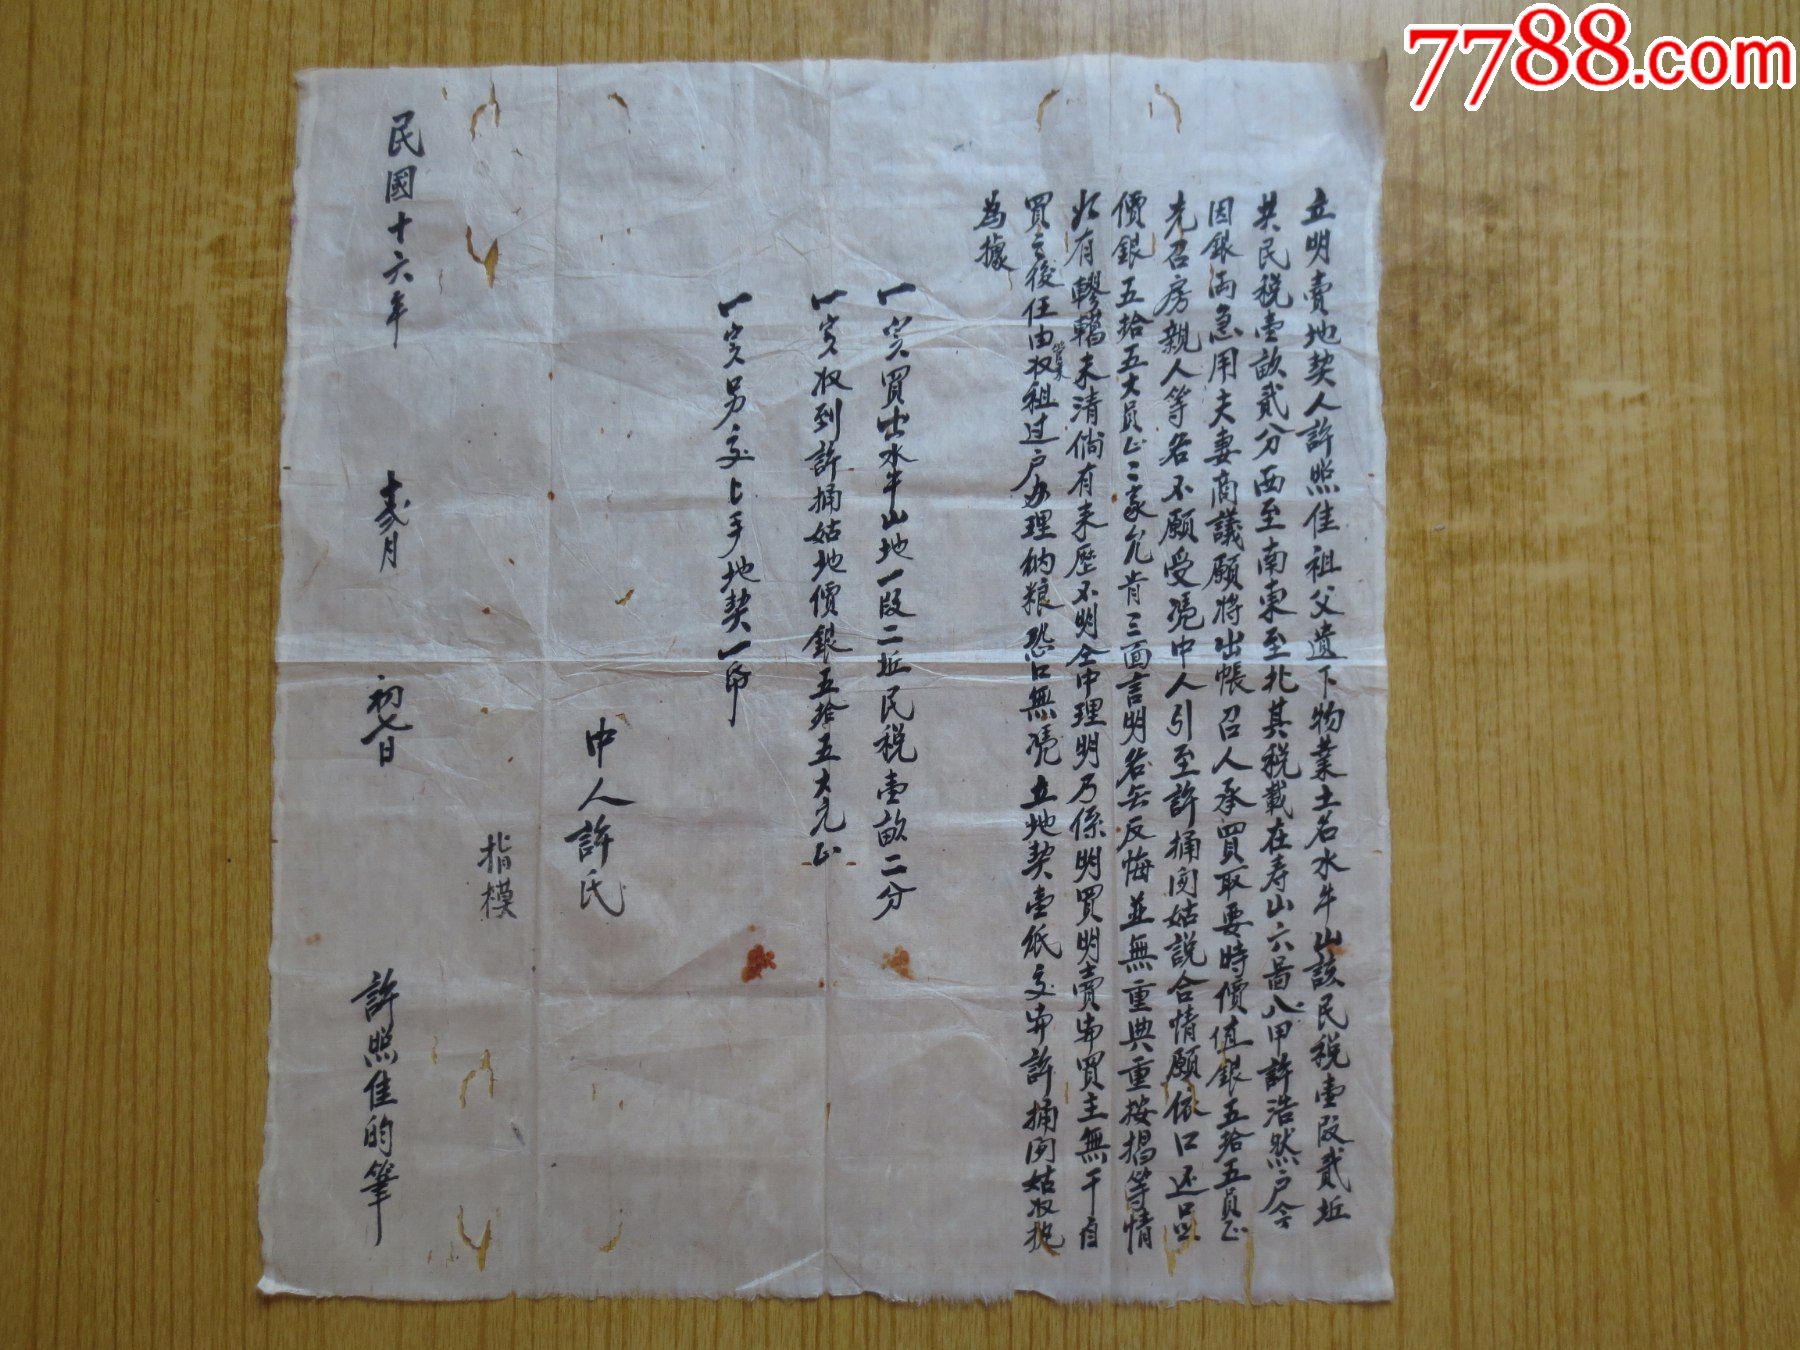 7788.com
立明賣地契人許照佳祖父遺下物業土名水牛山該民税壹段貳坵
共民税壹畝貳分西至南東至北其税載在寿山六啚八甲許浩然户今
因銀両急用夫妻商議願將出帳召人承買取要時價值銀五拾五員正
先召房親人等各不願受凴中人引至許捅姑説合情願依口还足
價銀五拾五大員正二家允肯三面言明各無反悔並無重典重按揭等情
如有轇轕未清倘有来歷不明仝中理明乃係明買明賣與買主無干自
買之後任由收租过户办理納粮恐口無凴立地契壹紙交與許捅姑收执
為據
一寔買出水牛山地一段二坵民税壹畝二分
一寔收到許捅姑地價銀五拾五大元正
一寔另交上手地契一帋
中人許氏
指模
民國十六年 十弍月 初七日 許照佳的筆